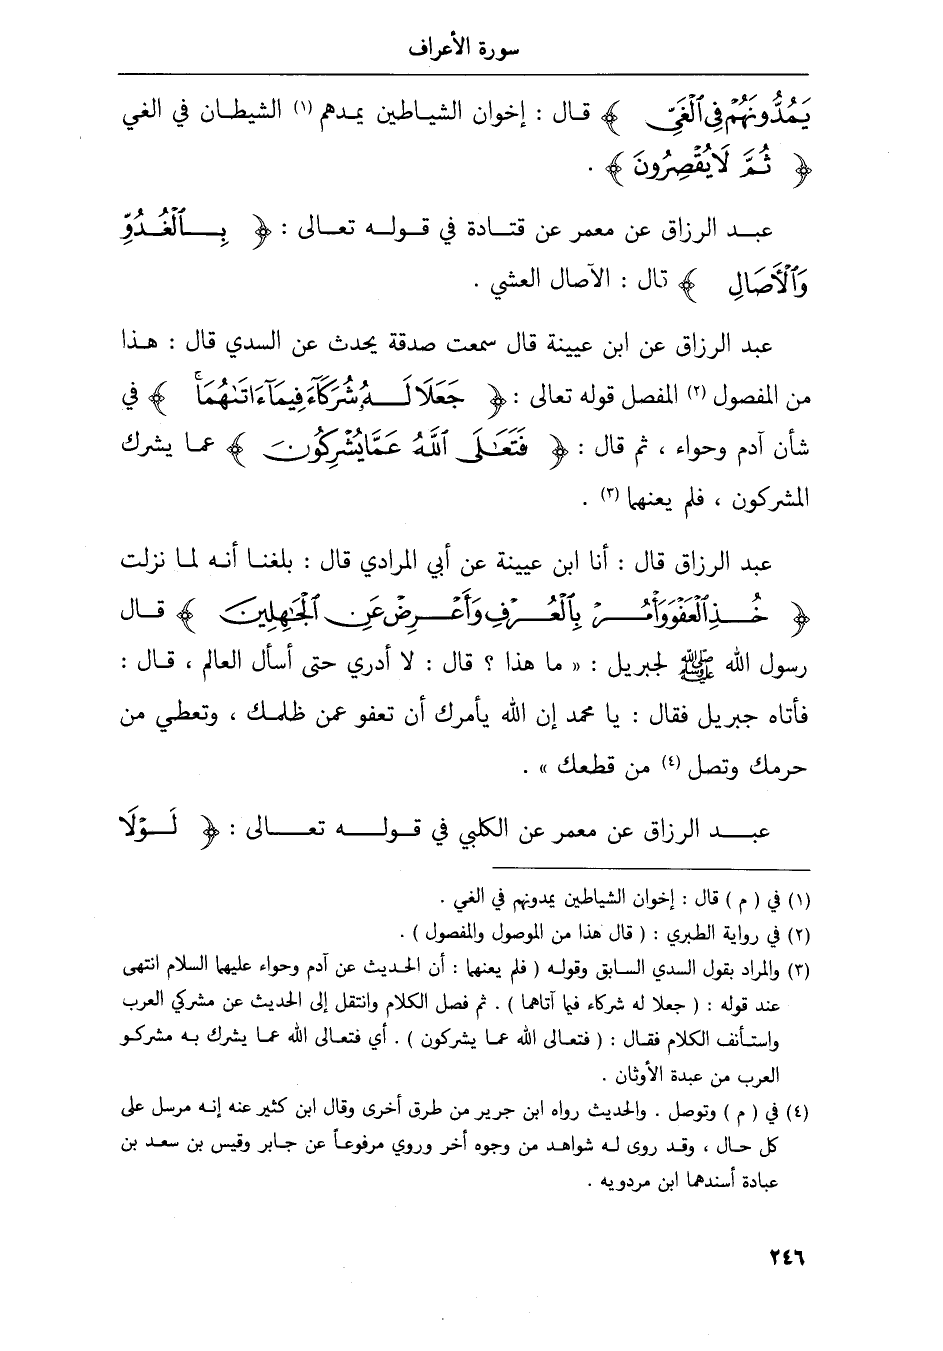 سورة الأعراف
يَمُدُّونَهُمْ فِي ٱلْغَيِّ ﴾ قال : إخوان الشياطين يمدهم (١) الشيطان في الغي
﴿ ثُمَّ لَا يُقْصِرُونَ ﴾ .
عبد الرزاق عن معمر عن قتادة في قوله تعالى : ﴿ بِٱلْغُدُوِّ
وَٱلْأَصَالِ ﴾ تال : الآصال العشي .
عبد الرزاق عن ابن عيينة قال سمعت صدقة يحدث عن السدي قال : هذا
من المفصول (٢) المفصل قوله تعالى : ﴿ جَعَلَا لَهُۥ شُرَكَآءَ فِيمَآ ءَاتَىٰهُمَا ۚ ﴾ في
شأن آدم وحواء ، ثم قال : ﴿ فَتَعَـٰلَى ٱللَّهُ عَمَّا يُشْرِكُونَ ﴾ عما يشرك
المشركون ، فلم يعنهما (٣) .
عبد الرزاق قال : أنا ابن عيينة عن أبي المرادي قال : بلغنا أنه لما نزلت
﴿ خُذِ ٱلْعَفْوَ وَأْمُرْ بِٱلْعُرْفِ وَأَعْرِضْ عَنِ ٱلْجَـٰهِلِينَ ﴾ قال
رسول الله ﷺ لجبريل : « ما هذا ؟ قال : لا أدري حتى أسأل العالم ، قال :
فأتاه جبريل فقال : يا محمد إن الله يأمرك أن تعفو عمن ظلمك ، وتعطي من
حرمك وتصل (٤) من قطعك » .
عبد الرزاق عن معمر عن الكلبي في قوله تعالى : ﴿ لَوْلَا
(١) في ( م ) قال : إخوان الشياطين يمدونهم في الغي .
(٢) في رواية الطبري : ( قال هذا من الموصول والمفصول ) .
(٣) والمراد بقول السدي السابق وقوله ( فلم يعنهما : أن الحديث عن آدم وحواء عليهما السلام انتهى
عند قوله : ( جعلا له شركاء فيما آتاهما ) . ثم فصل الكلام وانتقل إلى الحديث عن مشركي العرب
واستأنف الكلام فقال : ( فتعالى الله عما يشركون ) . أي فتعالى الله عما يشرك به مشركو
العرب من عبدة الأوثان .
(٤) في ( م ) وتوصل . والحديث رواه ابن جرير من طرق أخرى وقال ابن كثير عنه إنه مرسل على
كل حال ، وقد روى له شواهد من وجوه أخر وروي مرفوعاً عن جابر وقيس بن سعد بن
عبادة أسندهما ابن مردويه .
٢٤٦